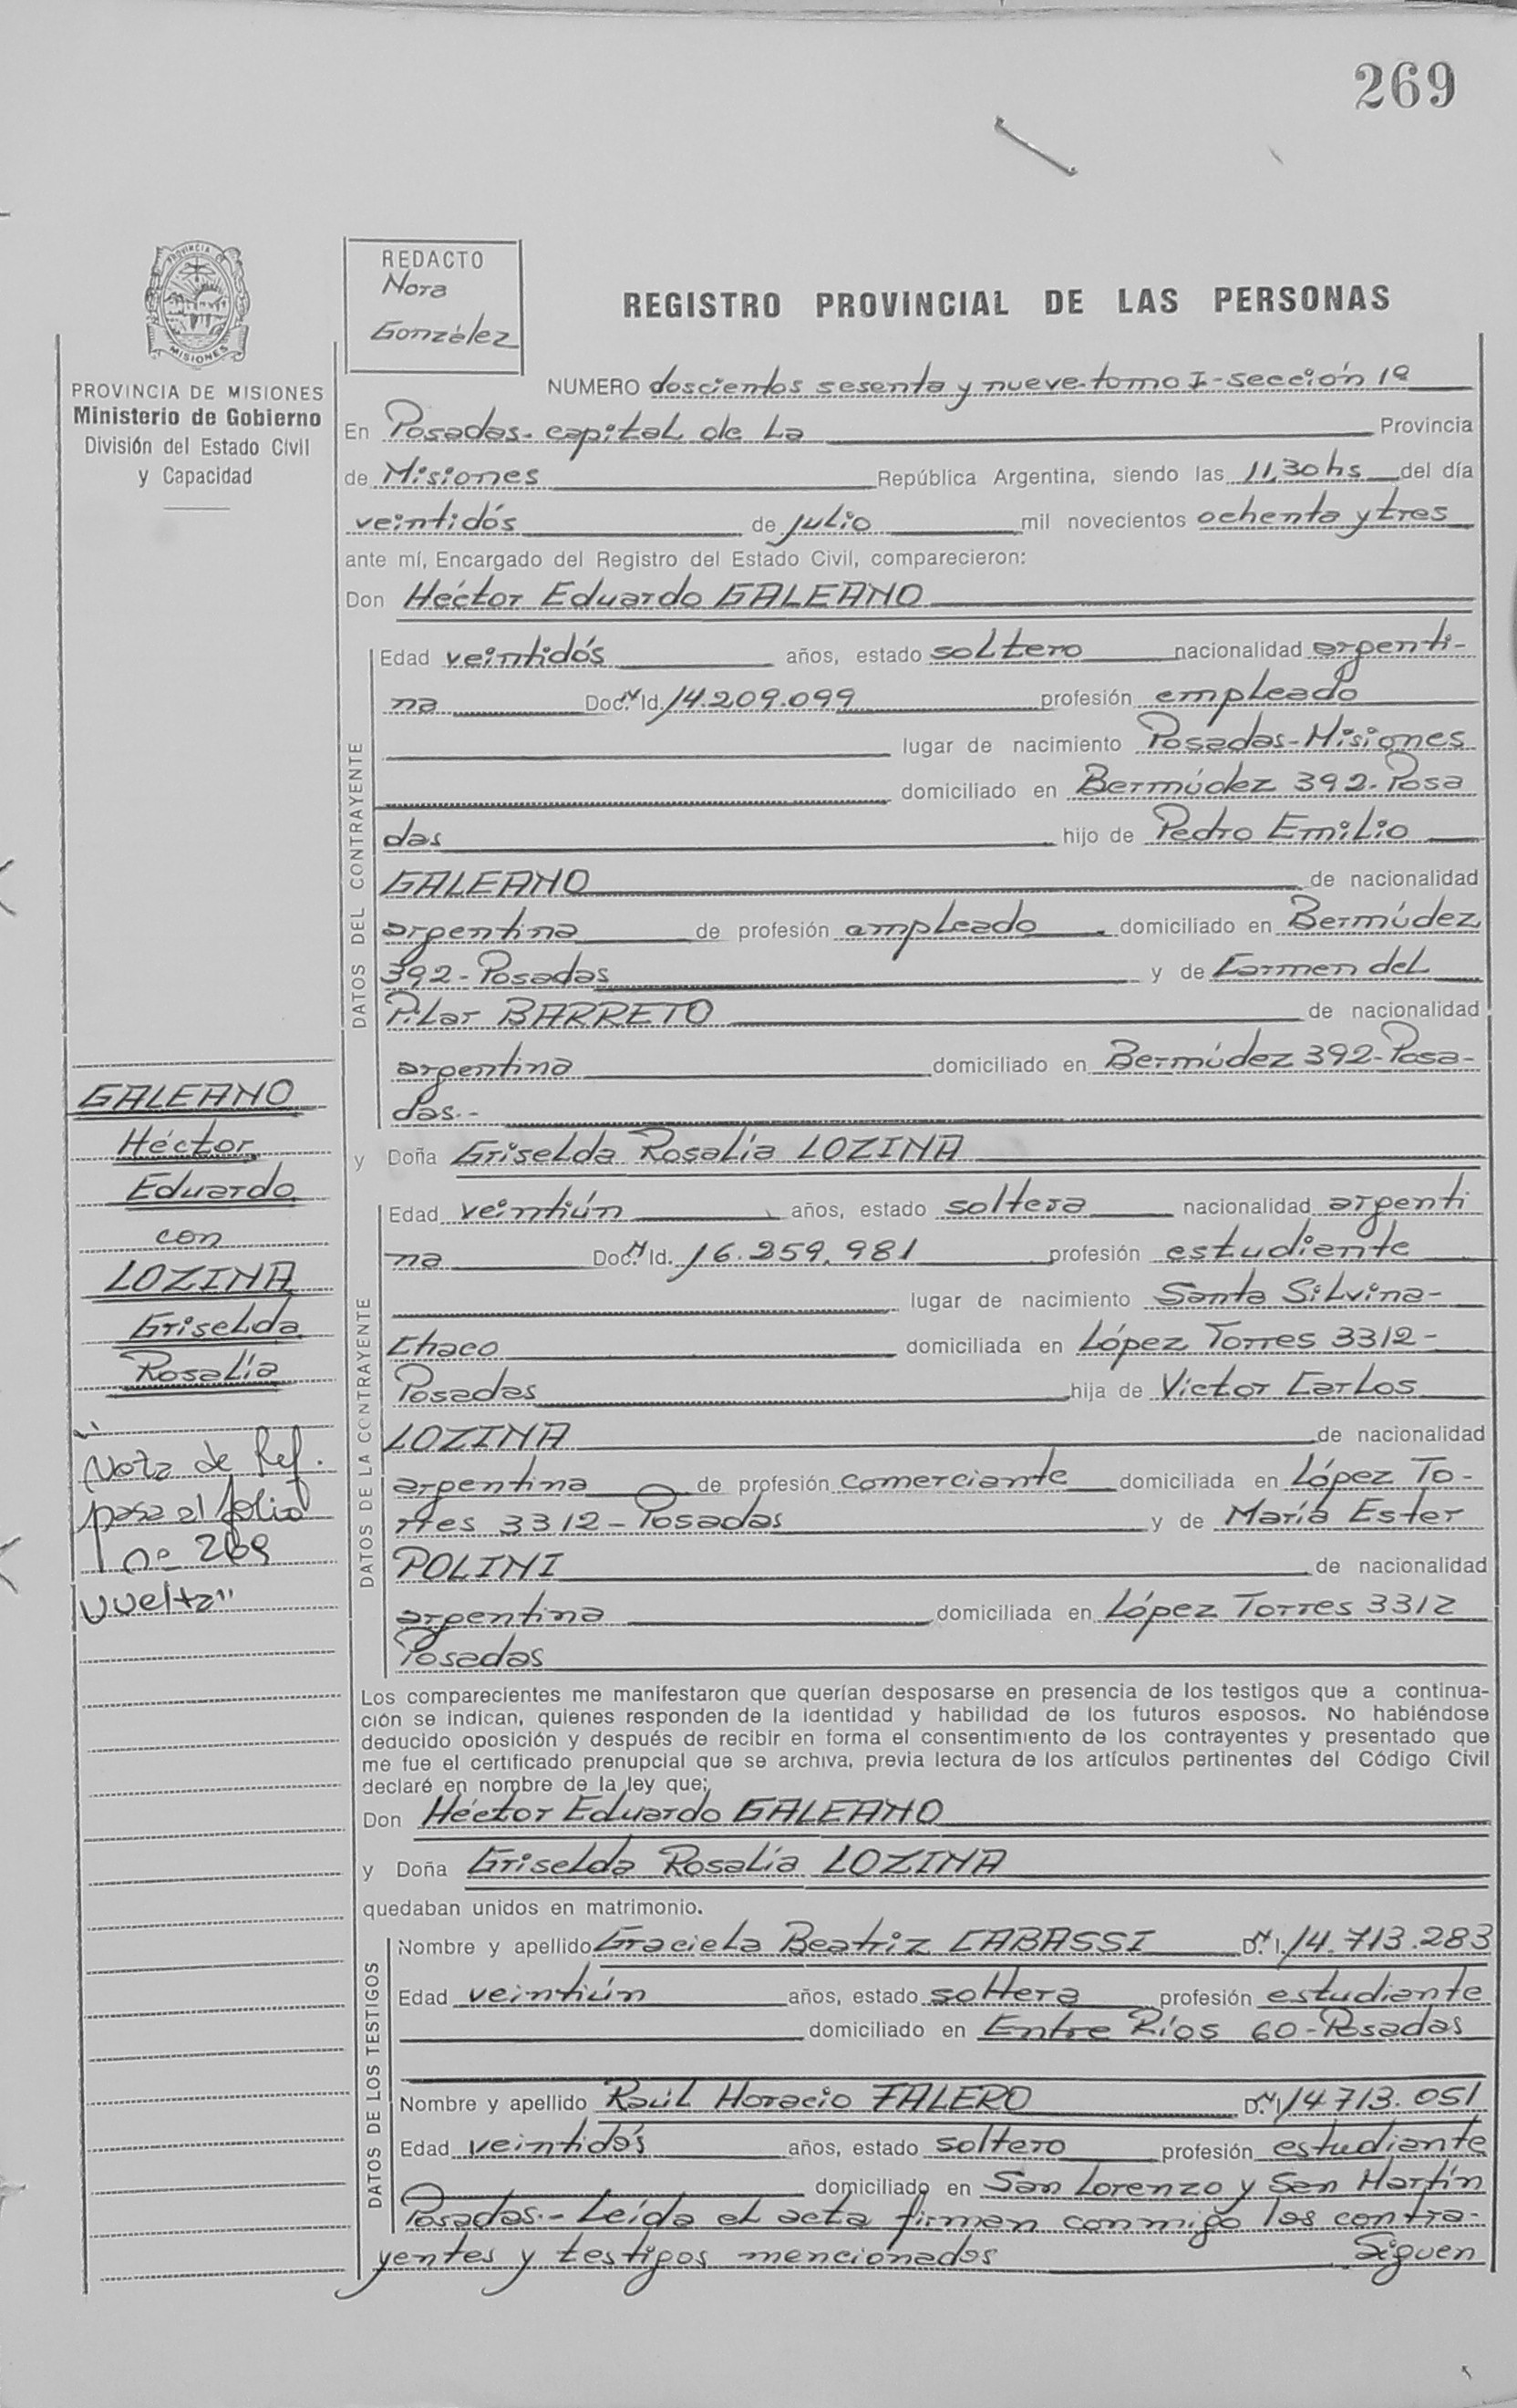 269
PROVINCIA DE
MISIONES
PROVINCIA DE MISIONES
Ministerio de Gobierno
División del Estado Civil
y Capacidad
REDACTO
Nora
González
REGISTRO PROVINCIAL DE LAS PERSONAS
NUMERO doscientos sesenta y nueve-tomo I-sección 1º
En Posadas-capital de La Provincia
de Misiones República Argentina, siendo las 11,30hs del día
veintidós de julio mil novecientos ochenta y tres
ante mí, Encargado del Registro del Estado Civil, comparecieron:
Don Héctor Eduardo GALEANO
DATOS DEL CONTRAYENTE
Edad veintidós años, estado soltero nacionalidad argenti-
na Doc. N. Id. 14.209.099 profesión empleado
lugar de nacimiento Posadas-Misiones
domiciliado en Bermúdez 392-Posa
das hijo de Pedro Emilio
GALEANO de nacionalidad
argentina de profesión empleado domiciliado en Bermúdez
392-Posadas y de Carmen del
Pilar BARRETO de nacionalidad
argentina domiciliado en Bermúdez 392-Posa-
das.-
y Doña Griselda Rosalía LOZINA
DATOS DE LA CONTRAYENTE
Edad veintiún años, estado soltera nacionalidad argenti
na Doc. N. Id. 16.259.981 profesión estudiante
lugar de nacimiento Santa Silvina-
Chaco domiciliada en López Torres 3312-
Posadas hija de Víctor Carlos
LOZINA de nacionalidad
argentina de profesión comerciante domiciliada en López To-
rres 3312-Posadas y de María Ester
POLINI de nacionalidad
argentina domiciliada en López Torres 3312
Posadas
Los comparecientes me manifestaron que querían desposarse en presencia de los testigos que a continua-
ción se indican, quienes responden de la identidad y habilidad de los futuros esposos. No habiéndose
deducido oposición y después de recibir en forma el consentimiento de los contrayentes y presentado que
me fue el certificado prenupcial que se archiva, previa lectura de los artículos pertinentes del Código Civil
declaré en nombre de la ley que;
Don Héctor Eduardo GALEANO
y Doña Griselda Rosalía LOZINA
quedaban unidos en matrimonio.
DATOS DE LOS TESTIGOS
Nombre y apellido Graciela Beatriz CABASSI D.N.I. 14.713.283
Edad veintiún años, estado soltera profesión estudiante
domiciliado en Entre Ríos 60-Posadas
Nombre y apellido Raúl Horacio FALERO D.N.I 14713.051
Edad veintidós años, estado soltero profesión estudiante
domiciliado en San Lorenzo y San Martín
Posadas.- Leída el acta firman conmigo los contra-
yentes y testigos mencionados Siguen
GALEANO
Héctor
Eduardo
con
LOZINA
Griselda
Rosalía
"Nota de Ref.
pasa al folio
nº 269
vuelta"